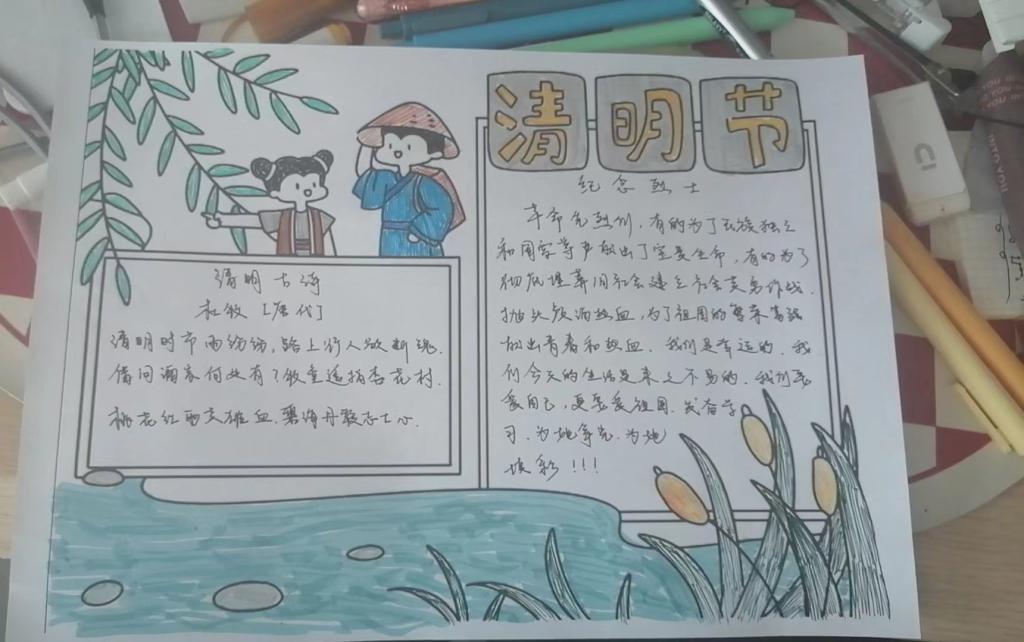 清明节
清明古诗
杜牧[唐代]
清明时节雨纷纷,路上行人欲断魂.
借问酒家何处有?牧童遥指杏花村.
桃花红雨英雄血.碧海丹霞志士心.
纪念烈士
革命先烈们,有的为了民族独立
和国家尊严献出了宝贵生命,有的为了
彻底埋葬旧社会建立社会主义而作战.
抛头颅洒热血,为了祖国的繁荣富强
献出青春和热血.我们是幸运的.我
们今天的生活是来之不易的.我们要
爱自己,更要爱祖国.发奋学
习.为她争光.为她
填彩!!!